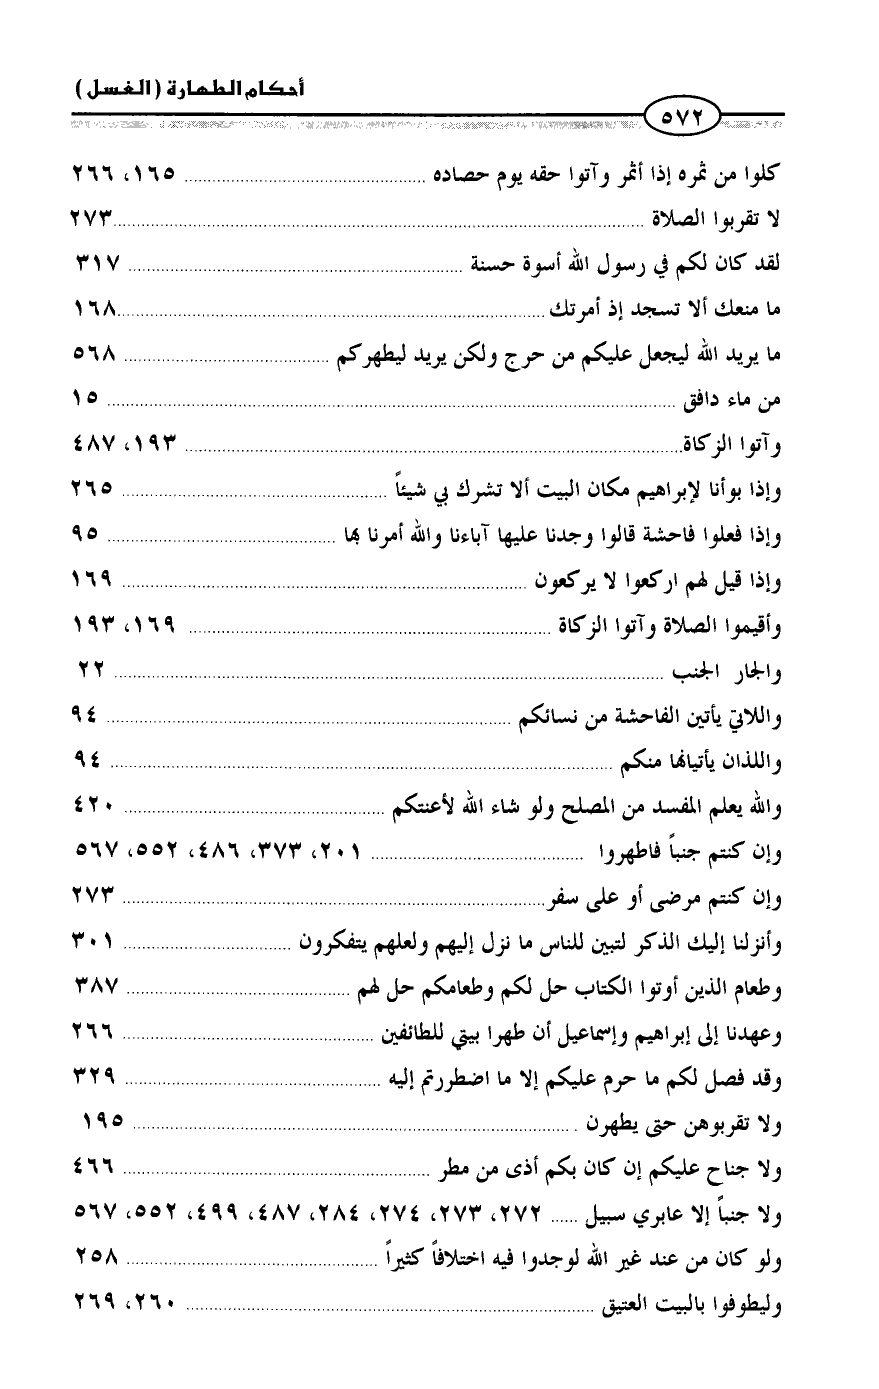 أحكام الطهارة (الغسل)
٥٧٢
كلوا من ثمره إذا أثمر وآتوا حقه يوم حصاده ........ ١٦٥، ٢٦٦
لا تقربوا الصلاة ........ ٢٧٣
لقد كان لكم في رسول الله أسوة حسنة ........ ٣١٧
ما منعك ألا تسجد إذ أمرتك ........ ١٦٨
ما يريد الله ليجعل عليكم من حرج ولكن يريد ليطهركم ........ ٥٦٨
من ماء دافق ........ ١٥
وآتوا الزكاة ........ ١٩٣، ٤٨٧
وإذا بوأنا لإبراهيم مكان البيت ألا تشرك بي شيئاً ........ ٢٦٥
وإذا فعلوا فاحشة قالوا وجدنا عليها آباءنا والله أمرنا بها ........ ٩٥
وإذا قيل لهم اركعوا لا يركعون ........ ١٦٩
وأقيموا الصلاة وآتوا الزكاة ........ ١٦٩، ١٩٣
والجار الجنب ........ ٢٢
واللاتي يأتين الفاحشة من نسائكم ........ ٩٤
واللذان يأتيانها منكم ........ ٩٤
والله يعلم المفسد من المصلح ولو شاء الله لأعنتكم ........ ٤٢٠
وإن كنتم جنباً فاطهروا ........ ٢٠١، ٣٧٣، ٤٨٦، ٥٥٢، ٥٦٧
وإن كنتم مرضى أو على سفر ........ ٢٧٣
وأنزلنا إليك الذكر لتبين للناس ما نزل إليهم ولعلهم يتفكرون ........ ٣٠١
وطعام الذين أوتوا الكتاب حل لكم وطعامكم حل لهم ........ ٣٨٧
وعهدنا إلى إبراهيم وإسماعيل أن طهرا بيتي للطائفين ........ ٢٦٦
وقد فصل لكم ما حرم عليكم إلا ما اضطررتم إليه ........ ٣٢٩
ولا تقربوهن حتى يطهرن ........ ١٩٥
ولا جناح عليكم إن كان بكم أذى من مطر ........ ٤٦٦
ولا جنباً إلا عابري سبيل ...... ٢٧٢، ٢٧٣، ٢٧٤، ٢٨٤، ٤٨٧، ٤٩٩، ٥٥٢، ٥٦٧
ولو كان من عند غير الله لوجدوا فيه اختلافاً كثيراً ........ ٢٥٨
وليطوفوا بالبيت العتيق ........ ٢٦٠، ٢٦٩